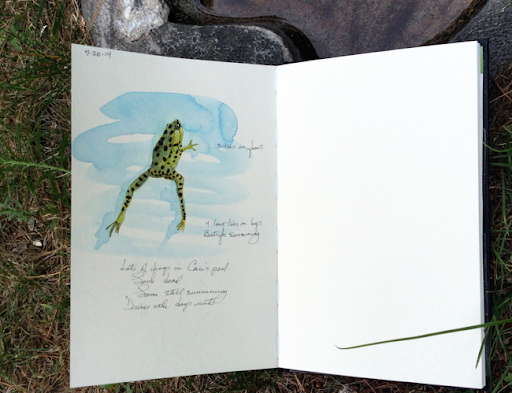 7-20-14
toes on front
4 long toes on legs
Built for swimming
Lots of frogs in Cari's pool
Some dead
Some still swimming
Draw the dogs